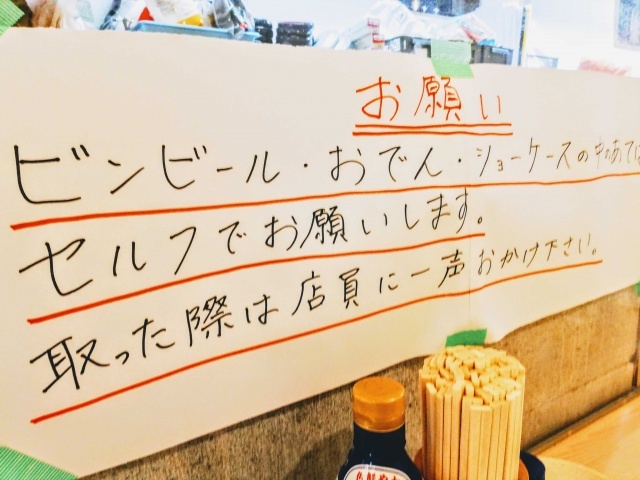 お願い
ビンビール・おでん・ショーケースの中のあては
セルフでお願いします。
取った際は店員に一声おかけ下さい。